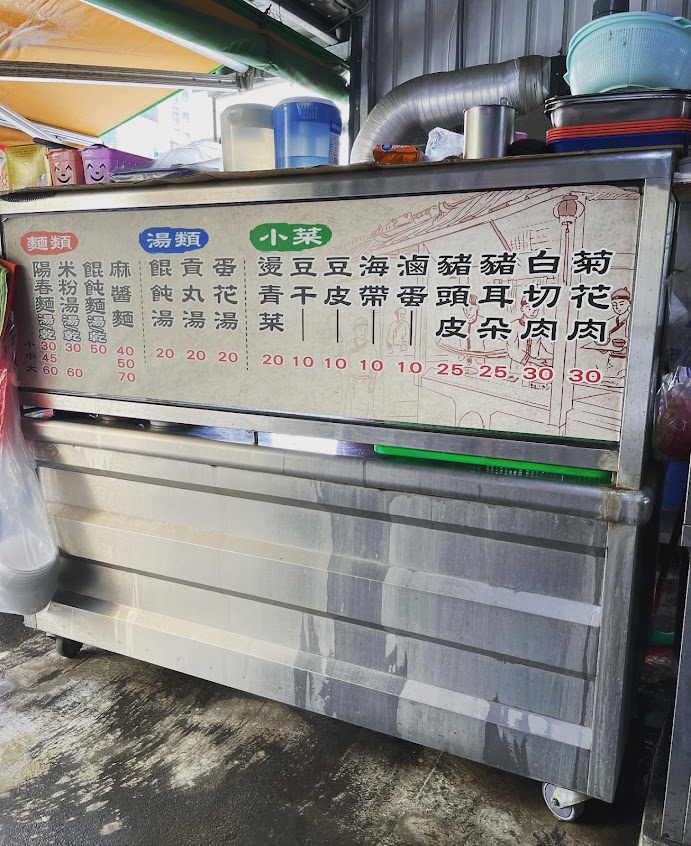 麵類
陽春麵湯乾
米粉湯乾
餛飩麵湯乾
麻醬麵
小 30 30 50 40
中 45 50
大 60 60 70
湯類
餛飩湯 20
貢丸湯 20
蛋花湯 20
小菜
燙青菜 20
豆干 10
豆皮 10
海帶 10
滷蛋 10
豬頭皮 25
豬耳朵 25
白切肉 30
菊花肉 30